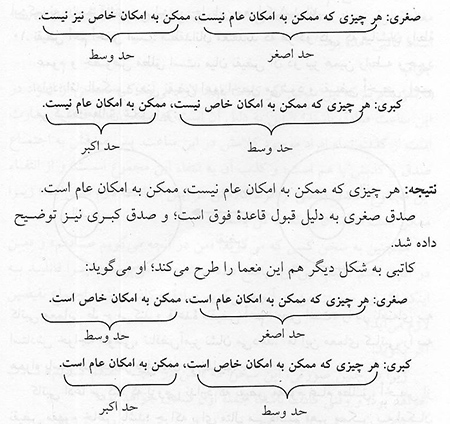 صغری: هر چیزی که ممکن به امکان عام نیست، ممکن به امکان خاص نیز نیست.
حد اصغر حد وسط
کبری: هر چیزی که ممکن به امکان خاص نیست، ممکن به امکان عام نیست.
حد وسط حد اکبر
نتیجه: هر چیزی که ممکن به امکان عام نیست، ممکن به امکان عام است.
صدق صغری به دلیل قبول قاعدهٔ فوق است؛ و صدق کبری نیـز توضـیح
داده شد.
کاتبی به شکل دیگر هم این معما را طرح می‌کند؛ او می‌گوید:
صغری: هر چیزی که ممکن به امکان عام است، ممکن به امکان خاص است.
حد اصغر حد وسط
کبری: هر چیزی که ممکن به امکان خاص است، ممکن به امکان عام است.
حد وسط حد اکبر